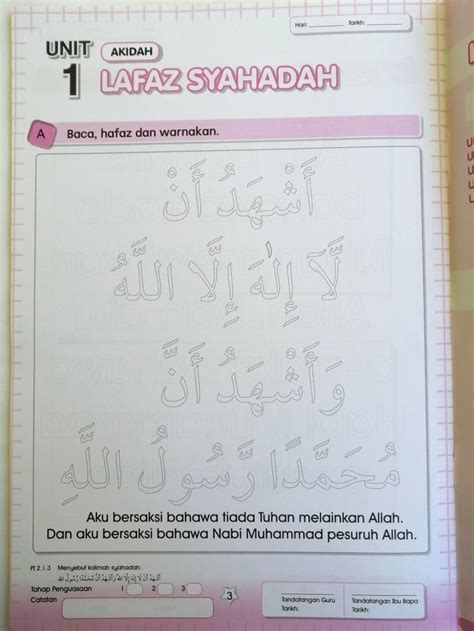 Hari: Tarikh:
UNIT 1 AKIDAH
LAFAZ SYAHADAH
A Baca, hafaz dan warnakan.
أَشْهَدُ أَنْ
لَّآ إِلٰهَ إِلَّا اللَّهُ
وَأَشْهَدُ أَنَّ
مُحَمَّدًا رَّسُولُ اللَّهِ
Aku bersaksi bahawa tiada Tuhan melainkan Allah.
Dan aku bersaksi bahawa Nabi Muhammad pesuruh Allah.
PI 2.1.3 Menyebut kalimah syahadah:
Tahap Penguasaan 1 2 3
Catatan
3
Tandatangan Guru
Tarikh:
Tandatangan Ibu Bapa
Tarikh: